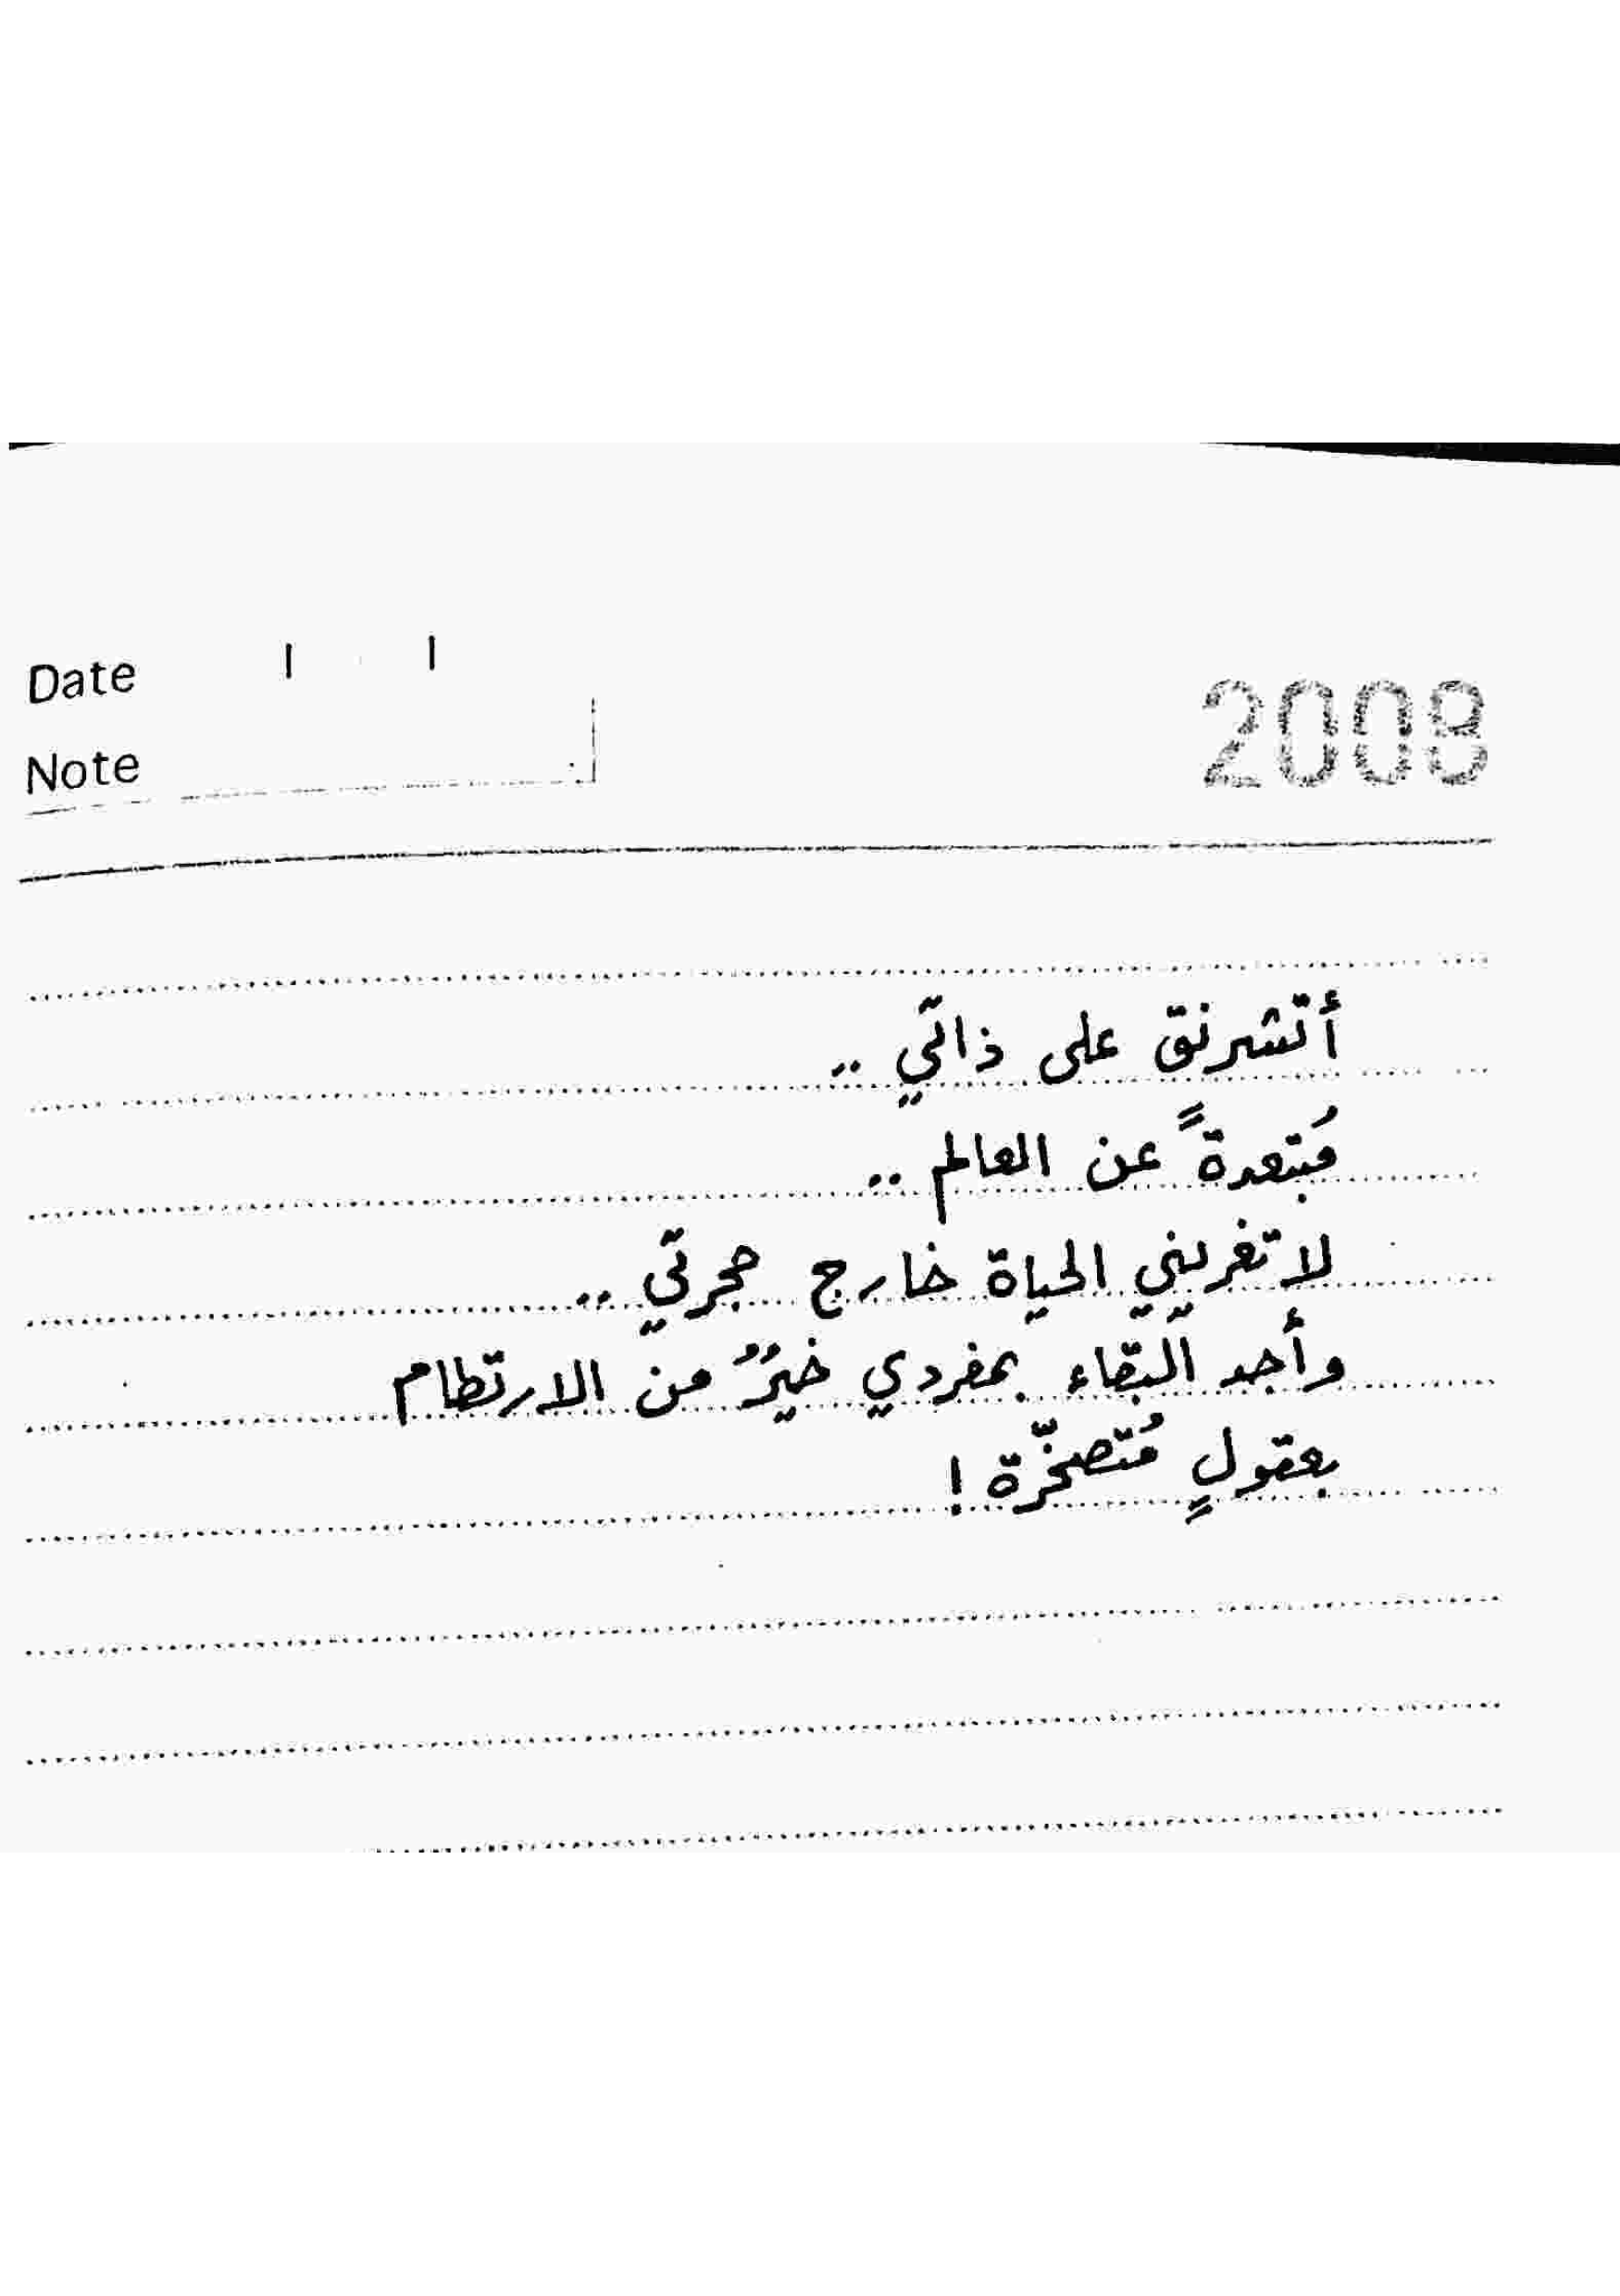 Date / /
2008
Note
أتشرنق على ذاتي ..
مُبتعدةً عن العالم ..
لا تغريني الحياة خارج حجرتي ..
وأجد البقاء بمفردي خيرٌ من الارتطام
بعقولٍ مُتصخّرة !